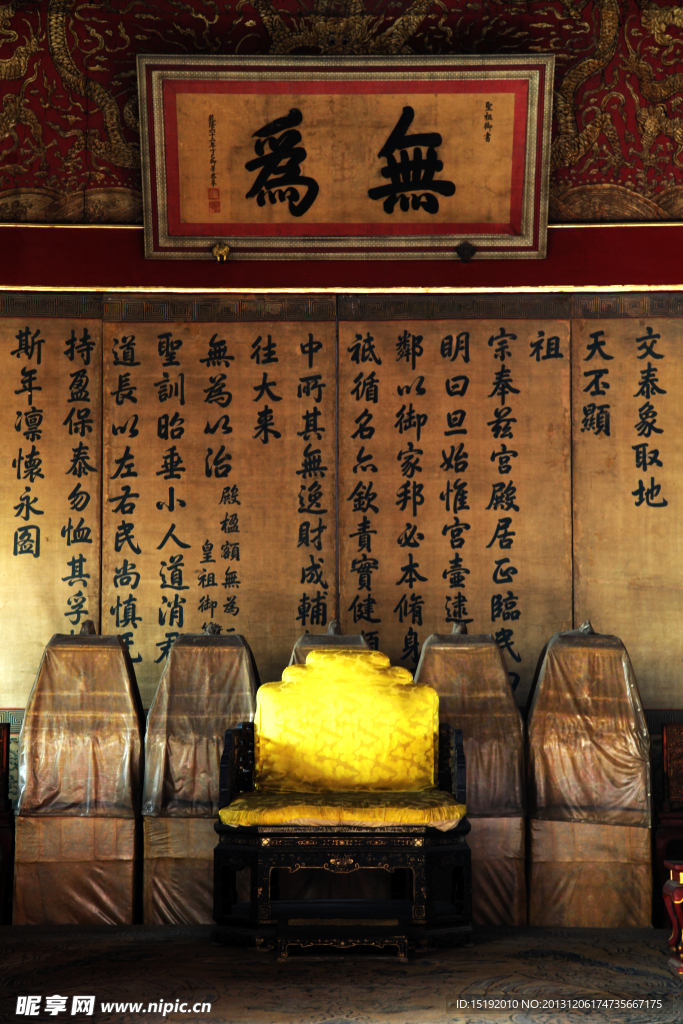 聖祖御書
無爲
交泰象取地
天丕顯
祖
宗奉茲宮殿居正臨民
明曰旦始惟宮壼逮
鄰以御家邦必本脩身
祗循名亦欽責實健順
中所其無逸財成輔
往大來
無為以治 殿楹額無為
皇祖御
聖訓昭垂小人道消君
道長以左右民尚慎
持盈保泰勿恤其孚
斯年凜懷永圖
昵享网 www.nipic.cn
ID:15192010 NO:20131206174735667175